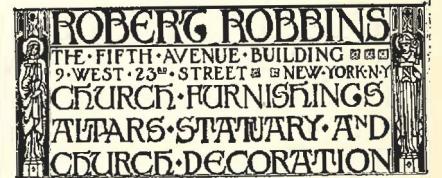 ROBERT ROBBINS
THE·FIFTH·AVENUE·BUILDING
9·WEST·23RD·STREET NEW·YORK·N·Y
CHURCH·FURNISHINGS
ALTARS·STATUARY·AND
CHURCH·DECORATION